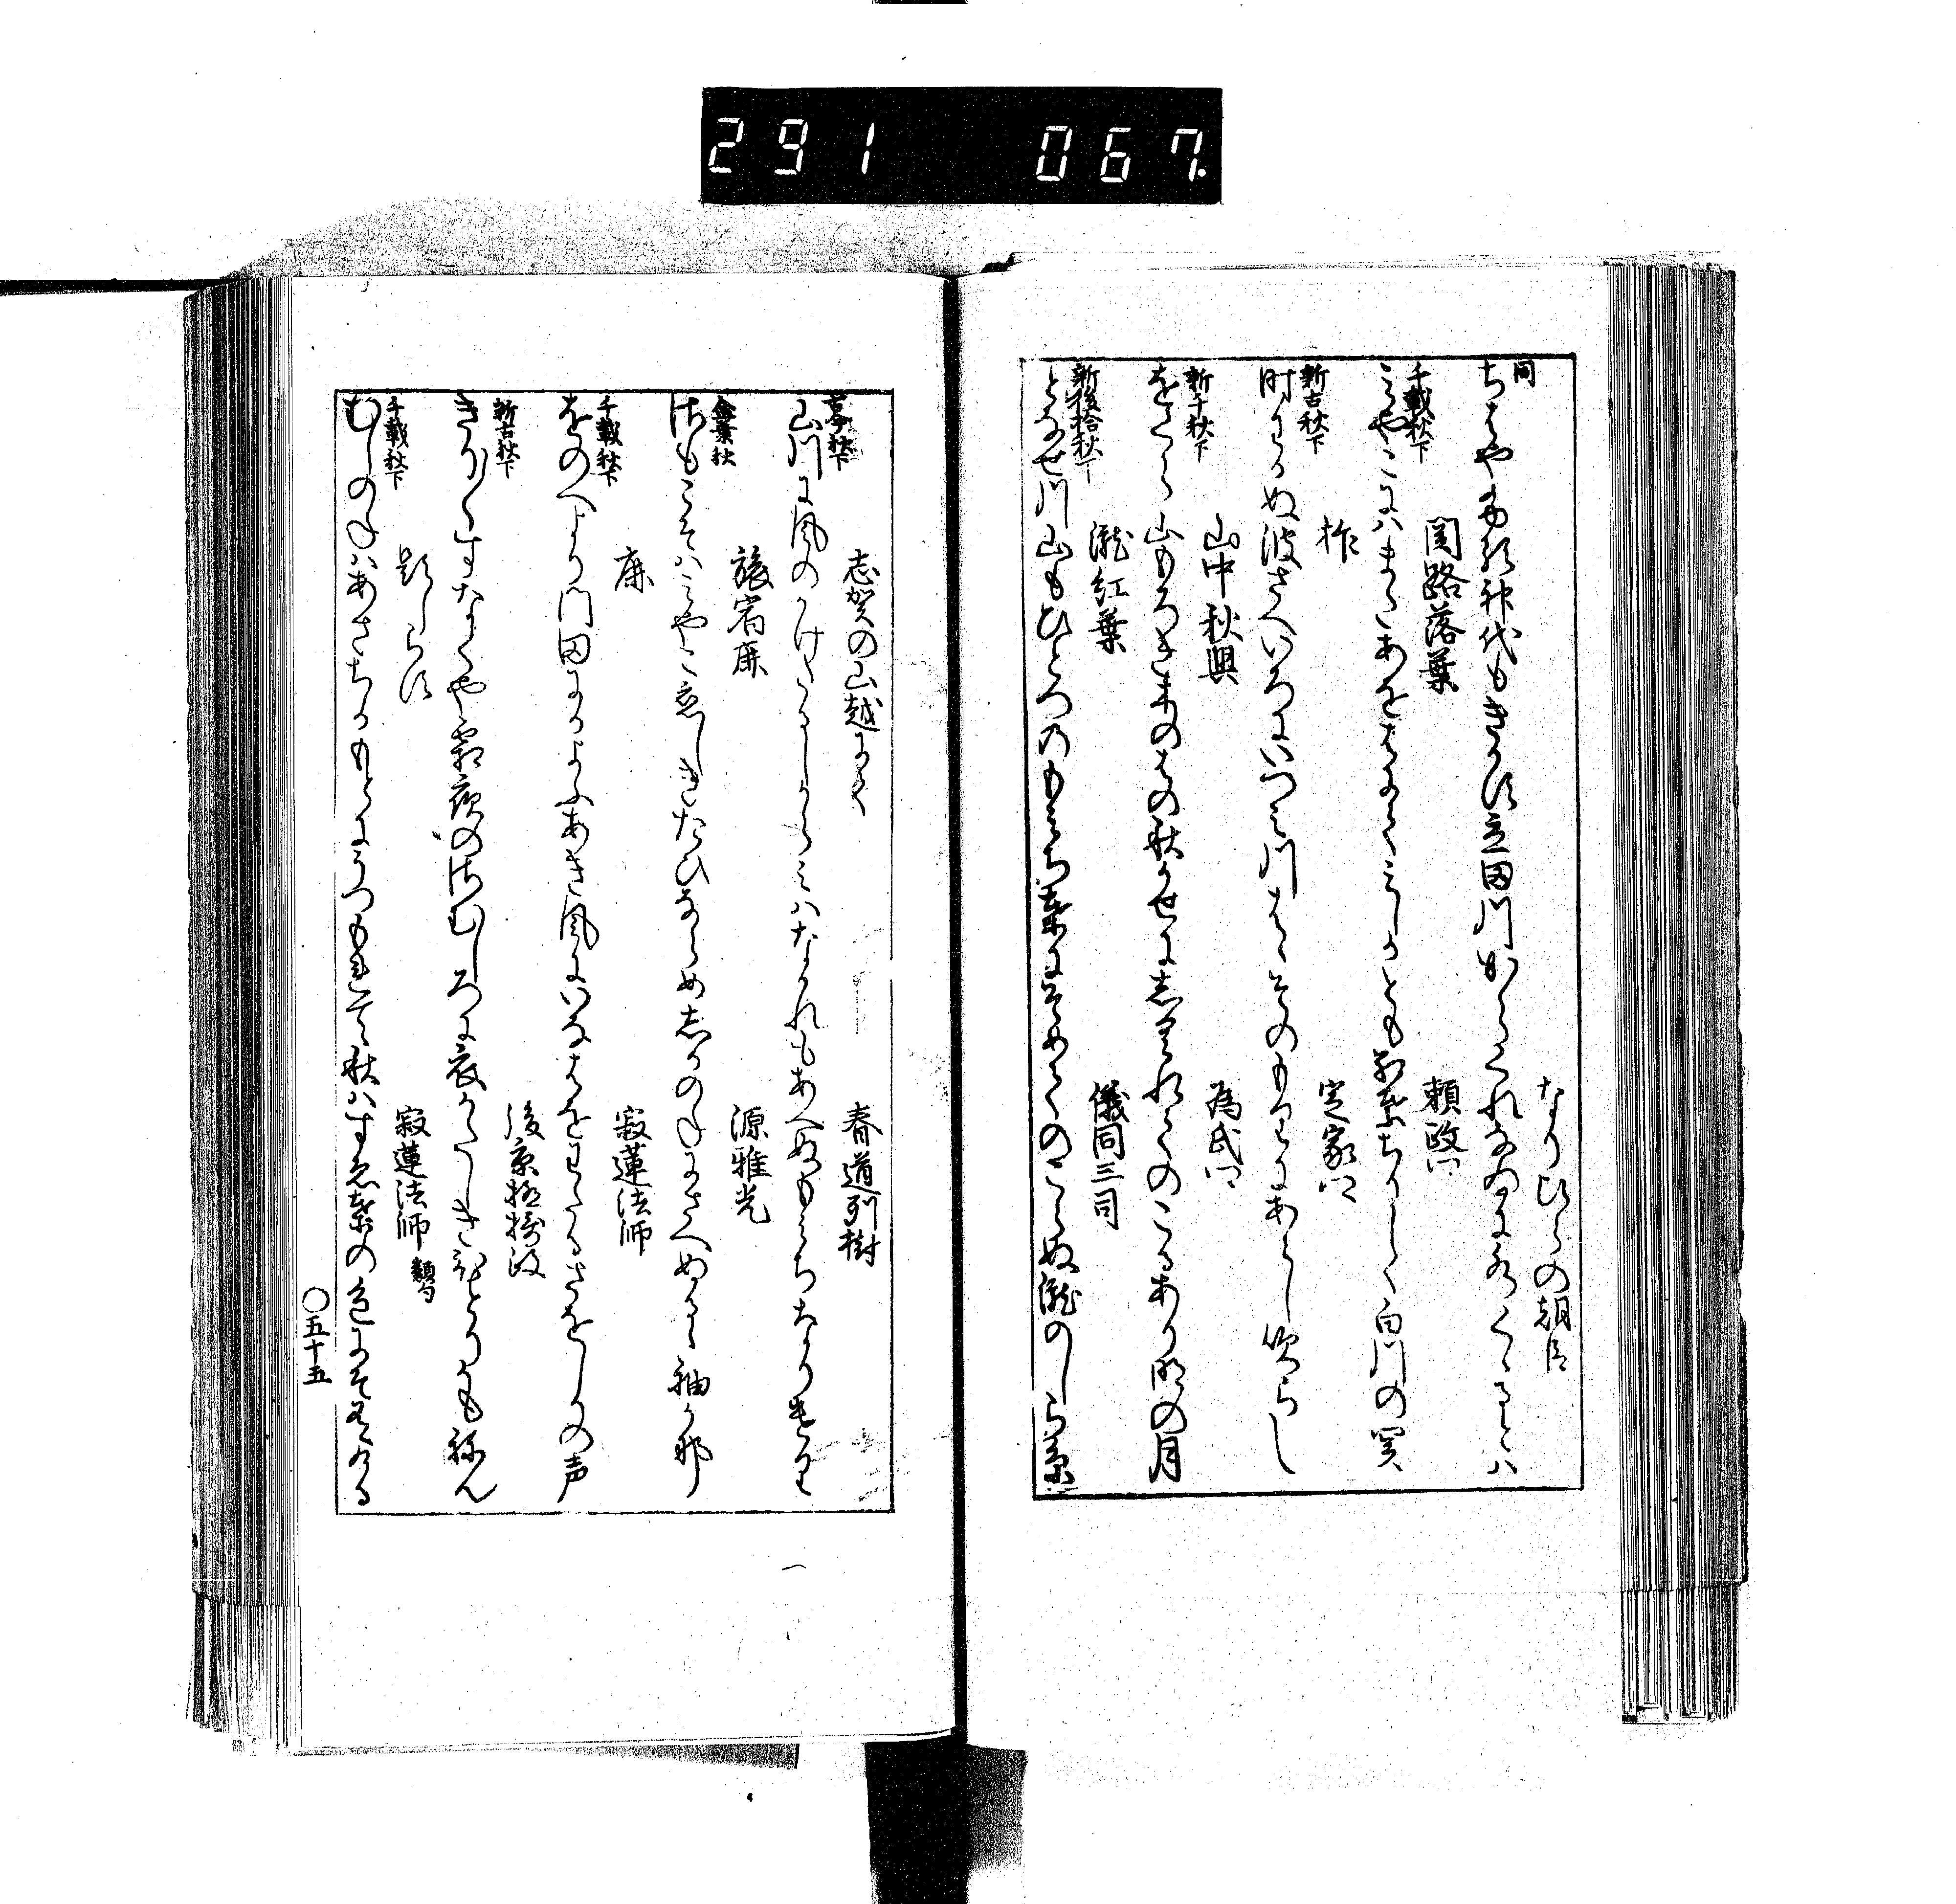 291 067.
なりひらの朝臣
同
ちはやふる神代もきかす立田川からくれなゐに水くゝるとは
関路落葉 頼政卿
千載秋下
みやこにはまたあをはにてみしかとも紅葉ちりしく白川の関
柞 定家卿
新古秋下
時わかぬ波さへいろにいつみ川はゝそのもりにあらし吹らし
山中秋興 為氏卿
新千秋下
をくら山もろき木のはの秋かせにしくれてのこるあり明の月
瀧紅葉 儀同三司
新後拾秋下
となせ川山もひとつのもみち葉にそめてのこらぬ瀧のしら糸
志賀の山越にて 春道列樹
古今秋下
山川に風のかけたるしからみはなかれもあへぬもみちなりけり
旅宿鹿 源雅光
金葉秋
さもこそはみやこ恋しきたひならめ鹿のねにさへぬるゝ袖かな
鹿 寂蓮法師
千載秋下
をのへより門田にかよふあき風にいなはをわたるさをしかの声
後京極摂政
新古秋下
きり〳〵すなくや霜夜のさむしろに衣かたしきひとりかもねん
題しらす 寂蓮法師
千載秋下
むしのねはあさちかもとにうつもれて秋はすゑ葉の色にそありける
〇五十五